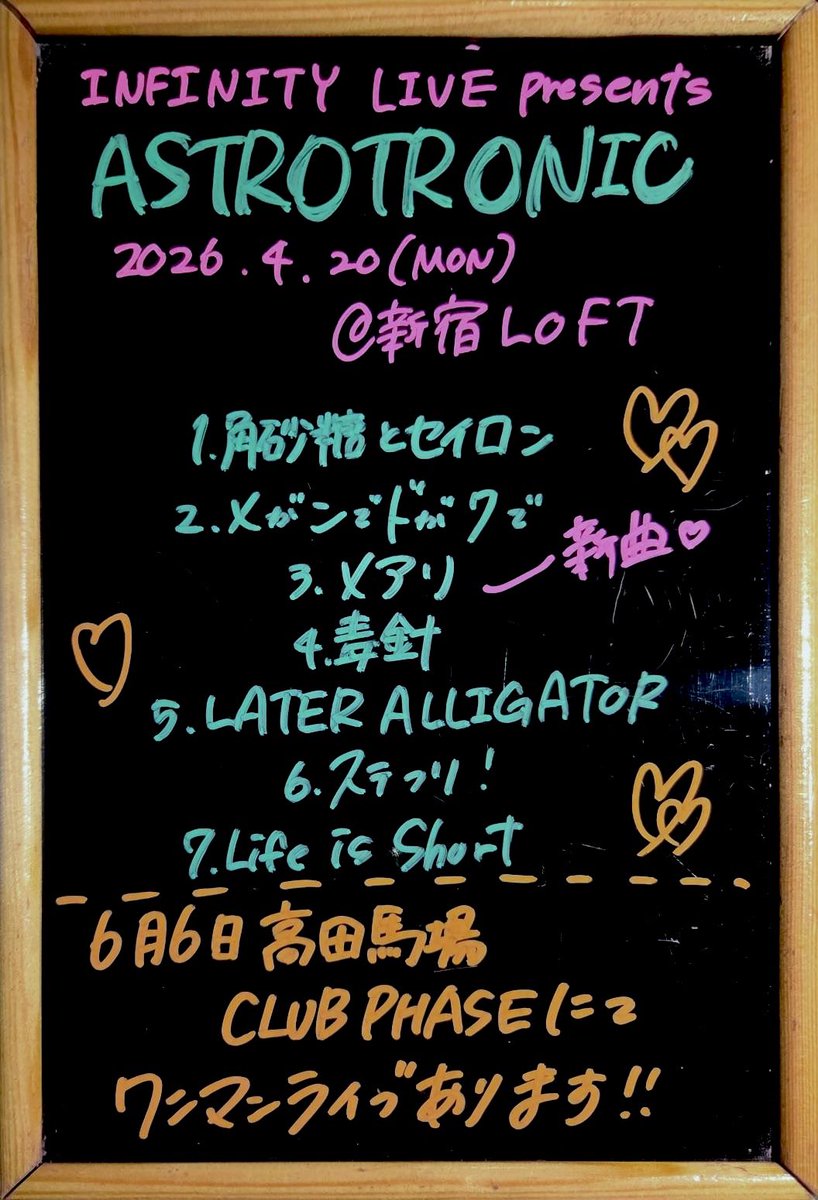 INFINITY LIVE presents
ASTROTRONIC
2026.4.20(MON)
@新宿LOFT
1.角砂糖とセイロン
2.メガンでドガワで
3.メアリ
新曲♡
4.毒針
5.LATER ALLIGATOR
6.ステップ!
7.Life is Short
6月6日高田馬場
CLUB PHASEにて
ワンマンライブあります!!